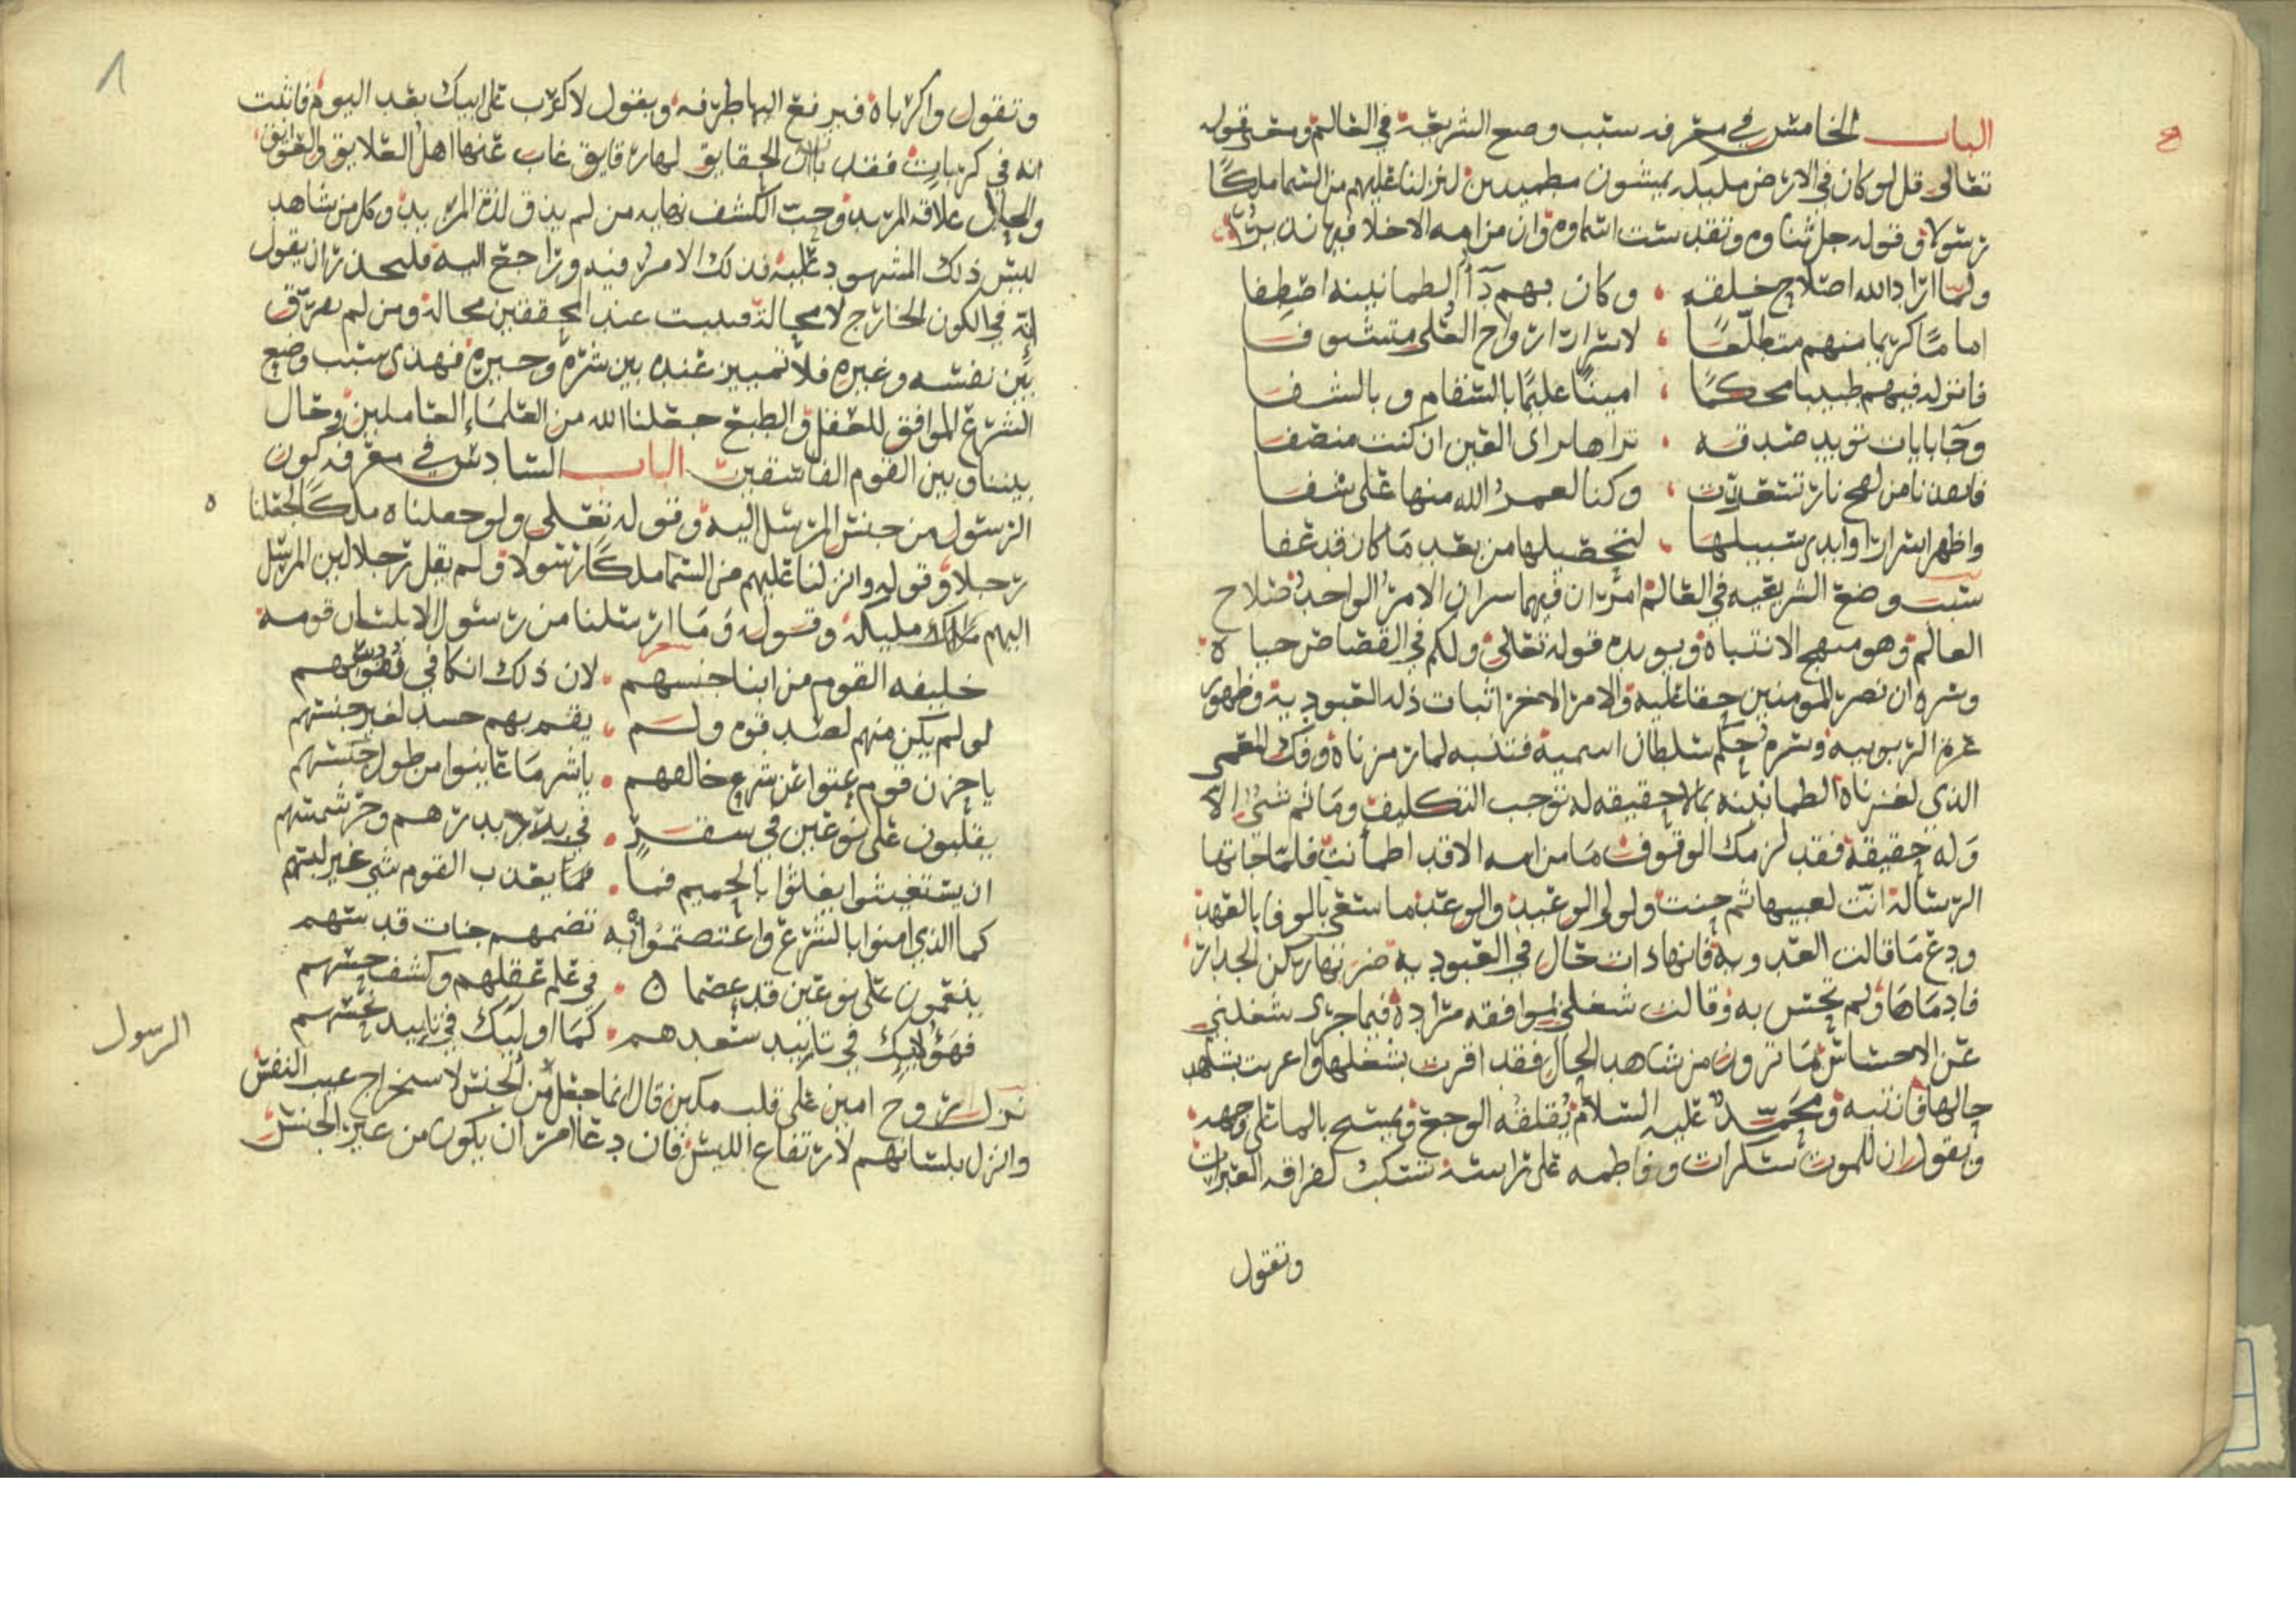 الباب الخامس في معرفه سبب وضع الشريعة في العالم ومعنى قوله
تعالى قل لو كان في الارض مليكه يمشون مطمينين لنزلنا عليهم من السما ملكًا
رسولا وقوله جل ثناوه وتقدست اسماوه وان من امه الا خلا فيها نذير
ولما اراد الله اصلاح خلقه وكان بهم دآ الطمانينه اصطفا
اماما كريما منهم متطلّعًا لاسرار ارواح العُلى متشوفا
فانزله فيهم طبيبا محكمًا امينًا عليمًا بالسقام وبالشفا
وجا بايات توييد صدقه تراها براى العين ان كنت منصفا
فابعدنا من لفح نار تسعّرت وكنا لعمرُ الله منها على شفا
واظهر اسرارا وابدى سبيلها لتحصيلها من بعد ما كان قد عفا
سبب وضع الشريعيه في العالم امران فيهما سران الامر الواحد صلاح
العالم وهو منهج الانتباه ويويده قوله تعالى ولكم في القصاص حياه
وسره ان نصر المومنين حقا عليه والامر الاخر اثبات ذله العبودية وظهور
عزة الربوبيه وسره حكم سلطان اسمية فتنبه لما رمزناه وفك المعمى
الذي لغزناه الطمانينه بمالا حقيقه له توجب التكليف وما ثم شي الا
وله حقيقة فقد لزمك الوقوف ما من امه الا قد اطمأنت فلما جاتها
الرسالة انّت لعيبها ثم حنت ولولى الوعيد والوعد ما سعى بالوفا بالعهد
ودع ما قالت العدويه فانها ذات حال في العبوديه ضربها ركن الجدار
فادماها ولم تحس به وقالت شغلني موافقه مراده فيما جرى شغلني
عن الاحساس بما ترون من شاهد الحال فقد اقرت بشغلها واعربت بشاهد
حالها فانتبه ومحمّد عليه السلام يُقلقُه الوجع ويمسح بالما على وجهه
ويقول ان للموت سكرات وفاطمه على راسه تسكب لفراقه العبرات
وتقول
وتقول واكرباه فيرفع اليها طرفه ويقول لا كرب على ابيك بعد اليوم فاثبت
انه في كربات فقد بان ان الحقايق لها رقايق غاب عنها اهل العلايق والعوايق
والحال علاقه المريد وحب الكشف نهايه من لم يذق لذة المزيد وكل من شاهد
ليس ذلك المشهود غلبه فذلك الامر فيه وراجع اليه فليحذر ان يقول
انه في الكون الخارج لا محالة فليست عند المحققين محالة ومن لم يفرّق
بين نفسه وغيره فلا تمييز عنده بين شره وخيره فهذى سبب وضع
الشرع الموافق للعقل والطبع جعلنا الله من العلماء العاملين وحال
بيننا وبين القوم الفاسقين الباب السادس في معرفه كون
الرسول من جنس المرسل اليه وقوله تعلى ولو جعلناه ملكًا لجعلناه
رجلا وقوله وانزلنا عليهم من السما ملكًا رسولا ولم يقل رجلا لان المرسل
اليهم مليكة وقوله وما ارسلنا من رسول الا بلسان قومه
خليفه القوم من ابنا جنسهم لان ذلك انكا في نفوسهم
لو لم يكن منهم لصدقوه ولم يقم بهم حسد لغير جنسهم
يا حزن قوم عتوا عن شرع خالقهم ياشر ما عاينوا من طول حبسهم
يقلبون على نوعين في سقر في برد زمهريرهم وحر شمسهم
ان يستغيثوا يغاثوا بالحميم فما فما يعذب القوم شي غير لبسهم
كما الذي امنوا بالشرع واعتصموا به تضمهم جنات قدسهم
ينعمون على نوعين قد عصما في علم عقلهم وكشف حسهم
فهؤلايك في تاييد سعدهم كما اوليك في تاييد نحسهم
نزل الروح امين على قلب مكين قال انما جعل من الجنس لاستخراج عيب النفس
وانزل بلسانهم لارتفاع اللبس فان دعا امر ان يكون من غير الجنس
الرسول